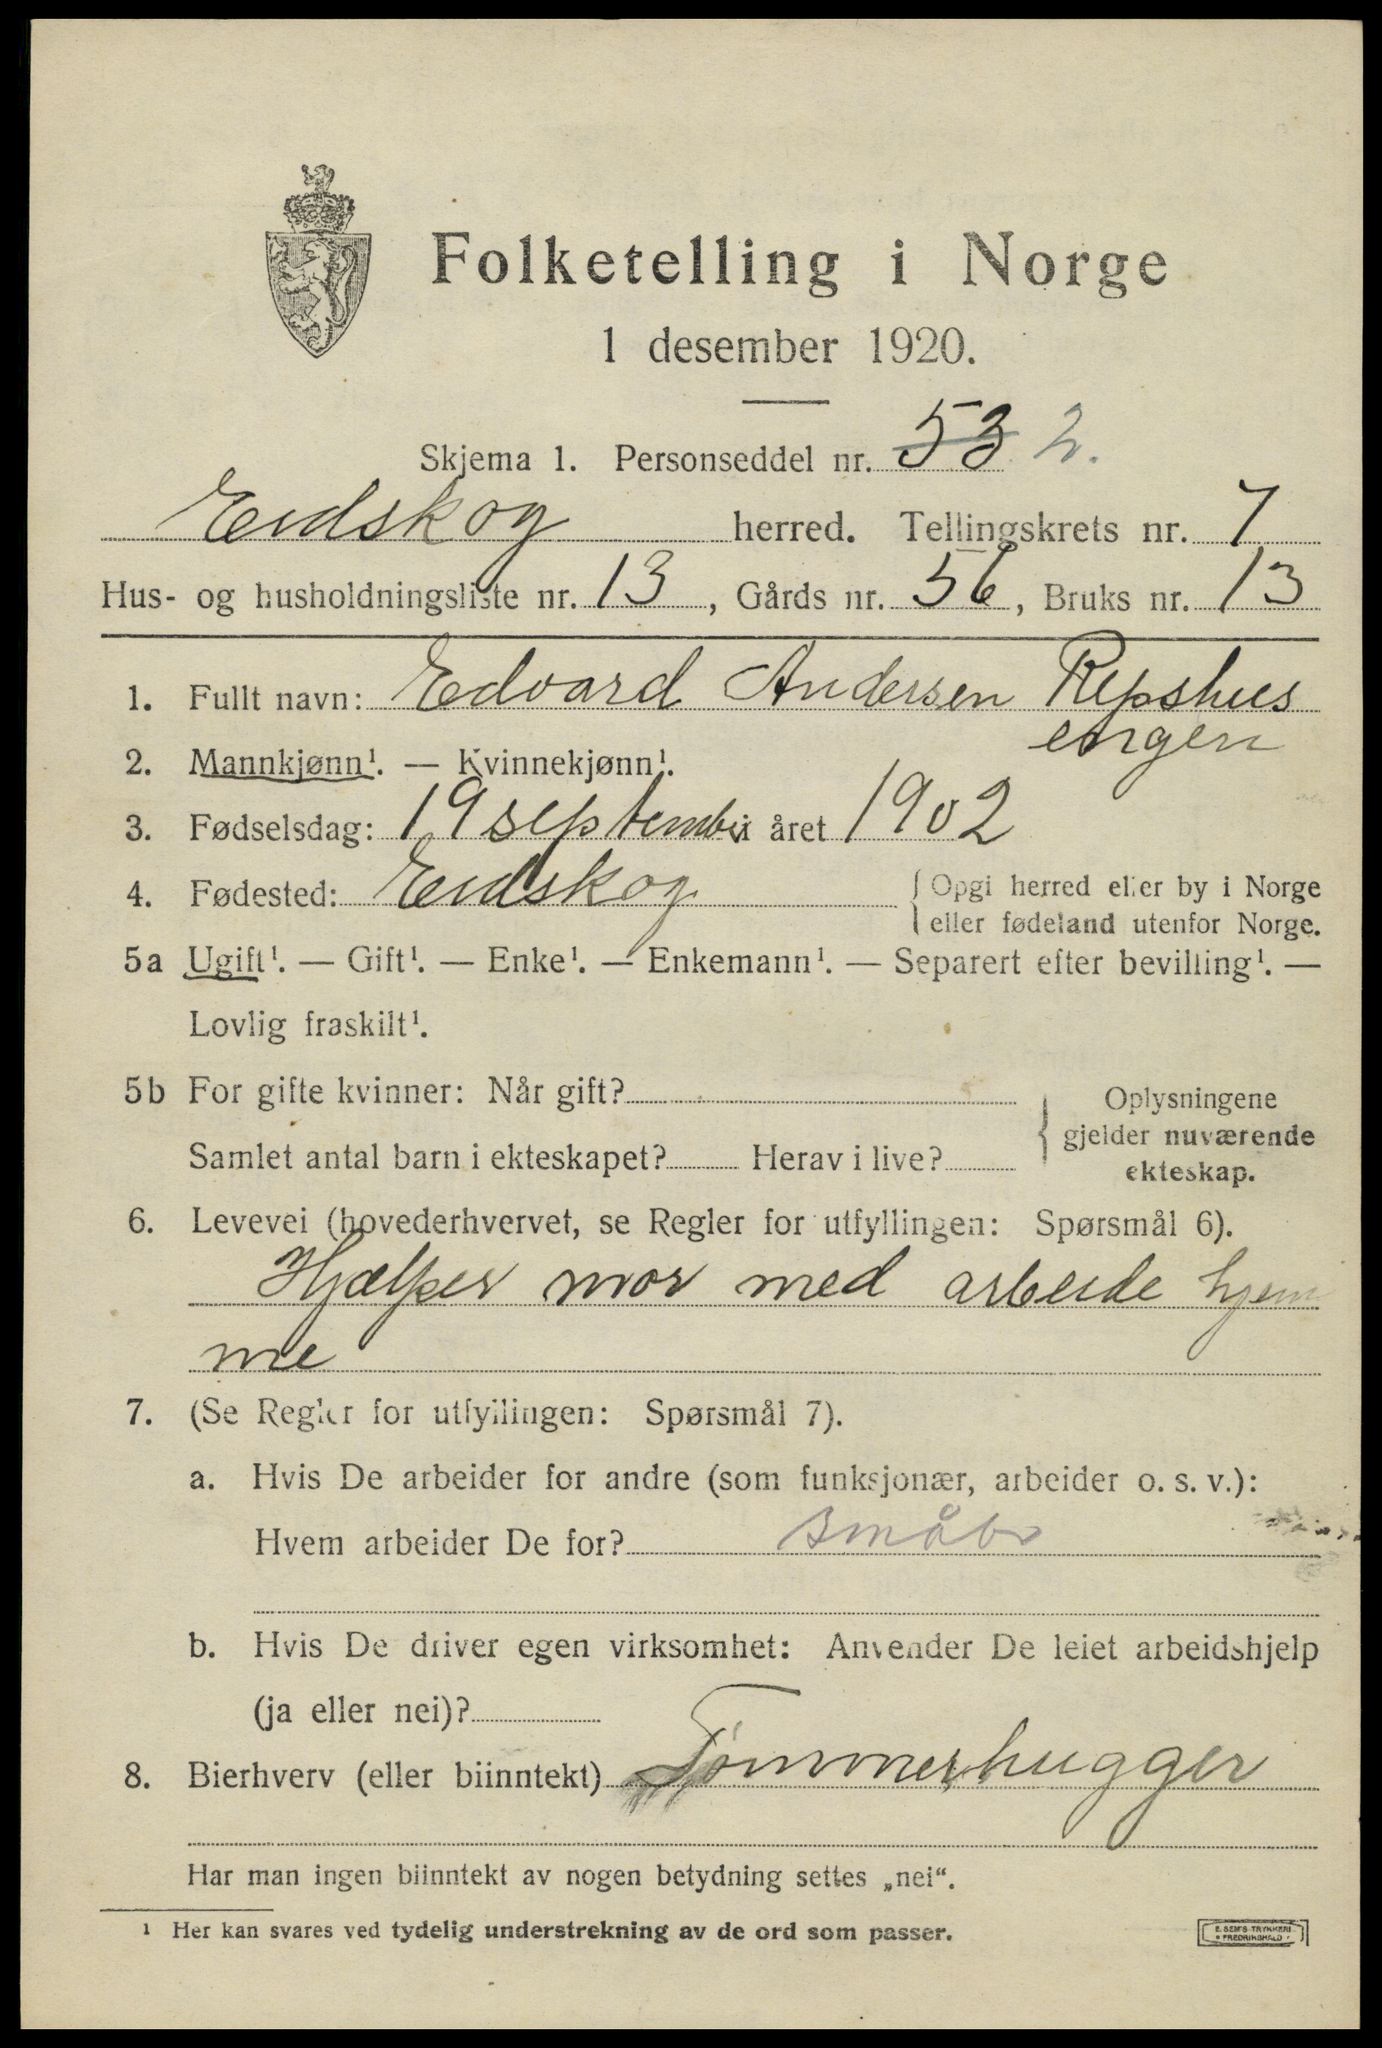 Folketelling i Norge
1 desember 1920.
Skjema 1. Personseddel nr. 53 2.
Eidskog herred. Tellingskrets nr. 7
Hus- og husholdningsliste nr. 13, Gårds nr. 56, Bruks nr. 13
1. Fullt navn: Edvard Andersen Repshus
engen
2. Mannkjønn¹. — Kvinnekjønn¹.
3. Fødselsdag: 19 september i året 1902
4. Fødested: Eidskog { Opgi herred eller by i Norge
eller fødeland utenfor Norge.
5a Ugift¹. — Gift¹. — Enke¹. — Enkemann¹. — Separert efter bevilling¹. —
Lovlig fraskilt¹.
5b For gifte kvinner: Når gift? { Oplysningene
gjelder nuværende
Samlet antal barn i ekteskapet? Herav i live?
ekteskap.
6. Levevei (hovederhvervet, se Regler for utfyllingen: Spørsmål 6).
Hjælper mor med arbeide hjem
me
7. (Se Regler for utfyllingen: Spørsmål 7).
a. Hvis De arbeider for andre (som funksjonær, arbeider o. s. v.):
Hvem arbeider De for? småbr
b. Hvis De driver egen virksomhet: Anvender De leiet arbeidshjelp
(ja eller nei)?
8. Bierhverv (eller biinntekt) Tømmerhugger
Har man ingen biinntekt av nogen betydning settes „nei“.
¹ Her kan svares ved tydelig understrekning av de ord som passer.
E. SEM'S TRYKKERI
FREDRIKSHALD